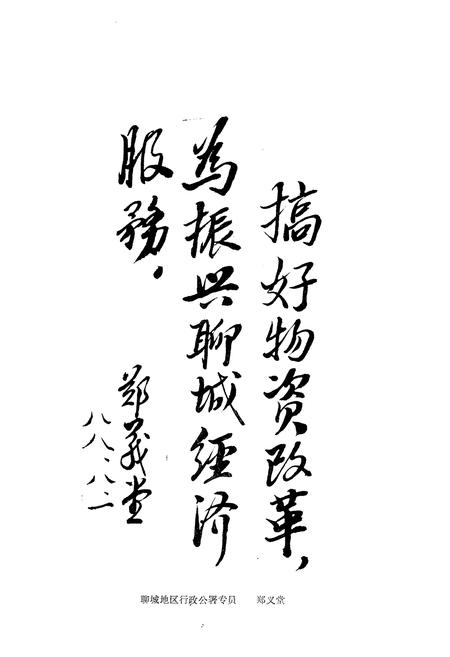 搞好物资改革，
為振兴聊城經济
服務，
郑義堂
八八、八、二
聊城地区行政公署专员　郑义堂